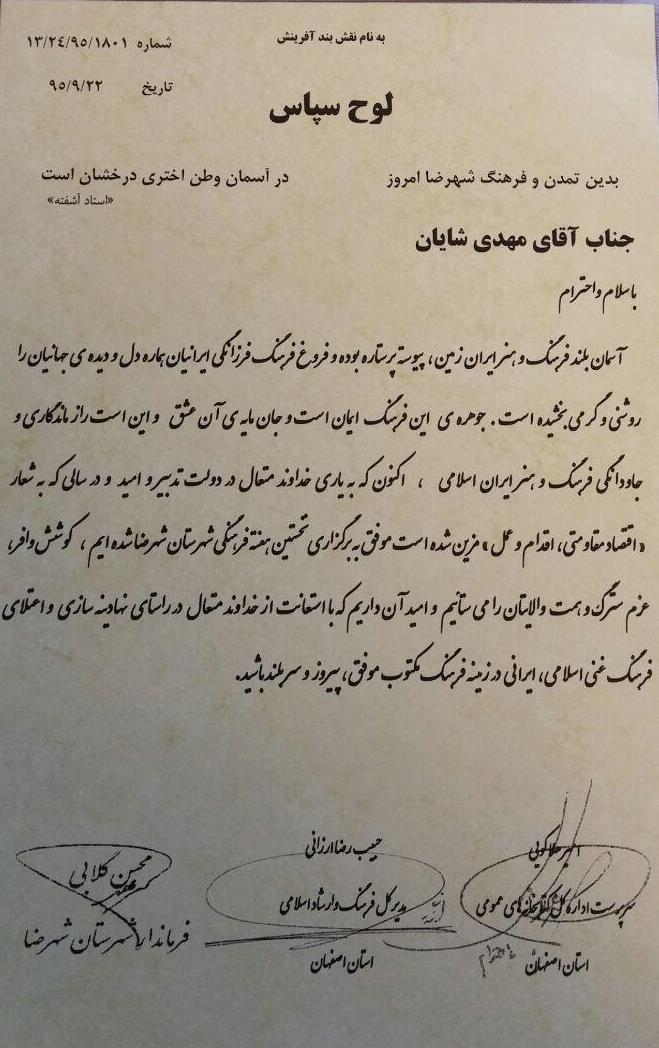 به نام نقش بند آفرینش
شماره ۱۳/۲٤/۹۵/۱۸۰۱
تاریخ ۹۵/۹/۲۲
لوح سپاس
بدین تمدن و فرهنگ شهرضا امروز در آسمان وطن اختری درخشان است
«استاد آشفته»
جناب آقای مهدی شایان
با سلام و احترام
آسمان بلند فرهنگ و هنر ایران زمین، پیوسته پرستاره بوده و فروغ فرهنگ فرزانگی ایرانیان هماره دل و دیده ی جهانیان را
روشنی و گرمی بخشیده است. جوهره ی این فرهنگ ایمان است و جان مایه ی آن عشق و این است راز ماندگاری و
جاودانگی فرهنگ و هنر ایران اسلامی ، اکنون که به یاری خداوند متعال در دولت تدبیر و امید و در سالی که به شعار
«اقتصاد مقاومتی، اقدام و عمل» مزین شده است موفق به برگزاری نخستین هفته فرهنگی شهرستان شهرضا شده ایم ، کوشش وافر،
عزم سترگ و همت والایتان را می ستانیم و امید آن داریم که با استعانت از خداوند متعال در راستای نهادینه سازی و اعتلای
فرهنگ غنی اسلامی، ایرانی در زمینه فرهنگ مکتوب موفق، پیروز و سربلند باشید.
حبیب رضا ارزانی
مدیر کل فرهنگ و ارشاد اسلامی
استان اصفهان
سرپرست اداره کل کتابخانه های عمومی
استان اصفهان
محسن گلابی
فرماندار شهرستان شهرضا